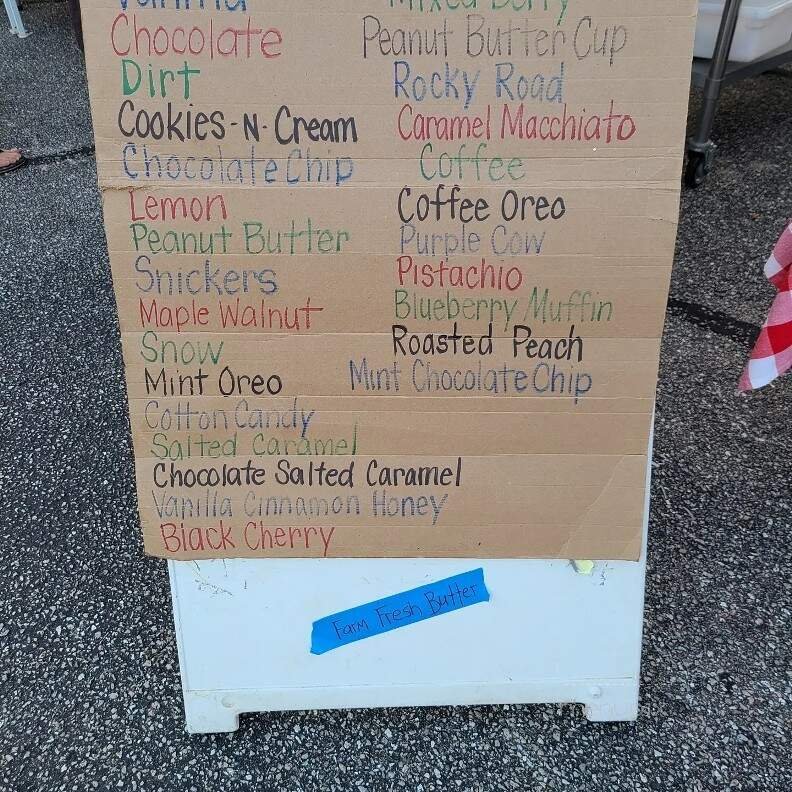 Vanilla Mixed Berry
Chocolate Peanut Butter Cup
Dirt Rocky Road
Cookies-N-Cream Caramel Macchiato
Chocolate Chip Coffee
Lemon Coffee Oreo
Peanut Butter Purple Cow
Snickers Pistachio
Maple Walnut Blueberry Muffin
Snow Roasted Peach
Mint Oreo Mint Chocolate Chip
Cotton Candy
Salted Caramel
Chocolate Salted Caramel
Vanilla Cinnamon Honey
Black Cherry
Farm Fresh Butter